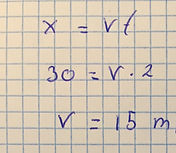 x = vt
30 = v · 2
v = 15 m